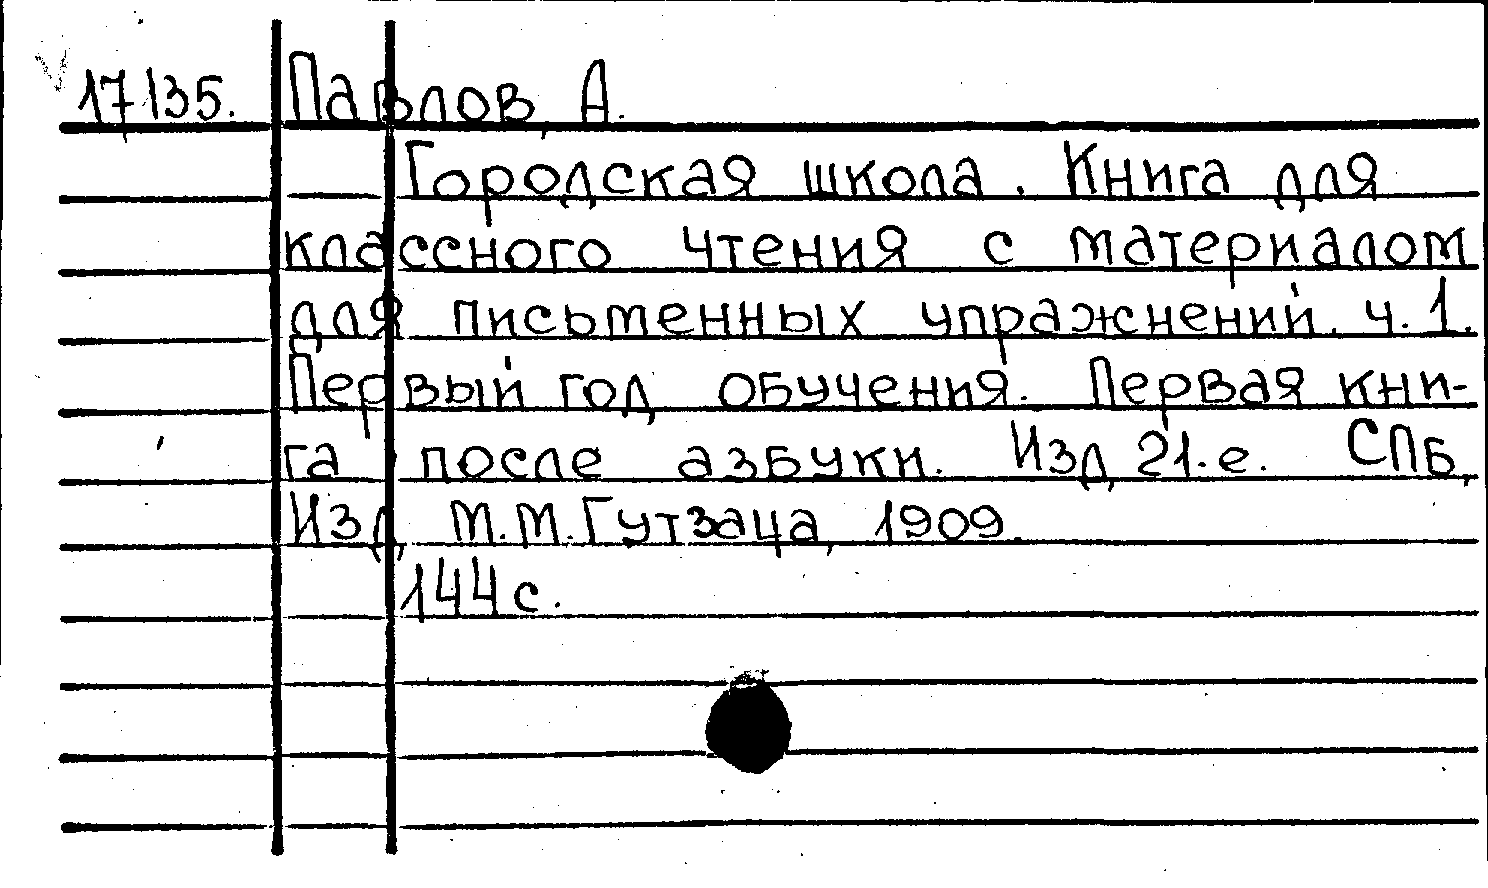 17135. Павлов, А.
Городская школа. Книга для
классного чтения с материалом
для письменных упражнений. ч. 1.
Первый год обучения. Первая кни-
га после азбуки. Изд. 21-е. СПб,
Изд. М.М.Гутзаца, 1909.
144 с.